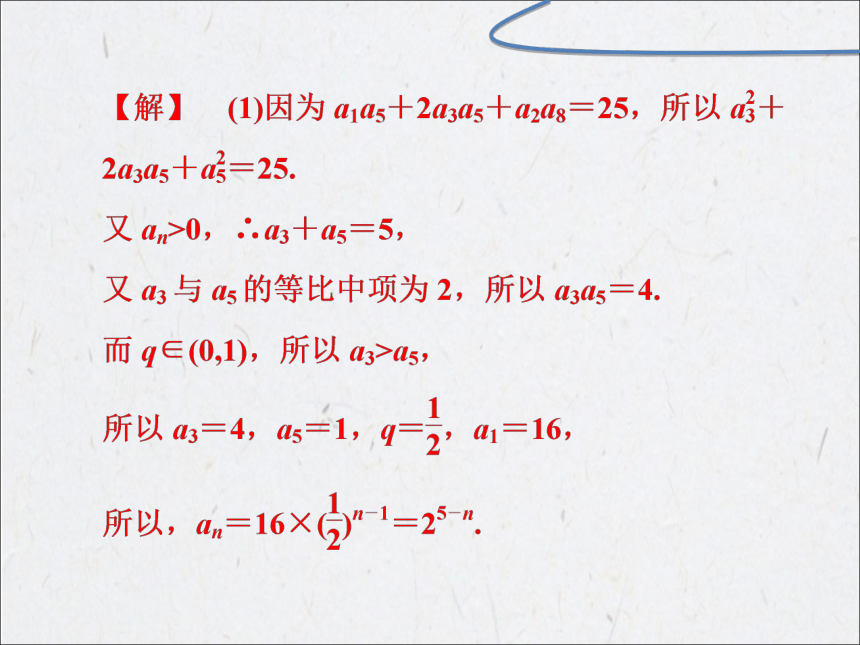 【解】 (1)因为 a₁a₅＋2a₃a₅＋a₂a₈＝25，所以 a₃²＋
2a₃a₅＋a₅²＝25.
又 aₙ>0，∴a₃＋a₅＝5，
又 a₃ 与 a₅ 的等比中项为 2，所以 a₃a₅＝4.
而 q∈(0,1)，所以 a₃>a₅，
所以 a₃＝4，a₅＝1，q＝1/2，a₁＝16，
所以，aₙ＝16×(1/2)ⁿ⁻¹＝2⁵⁻ⁿ.